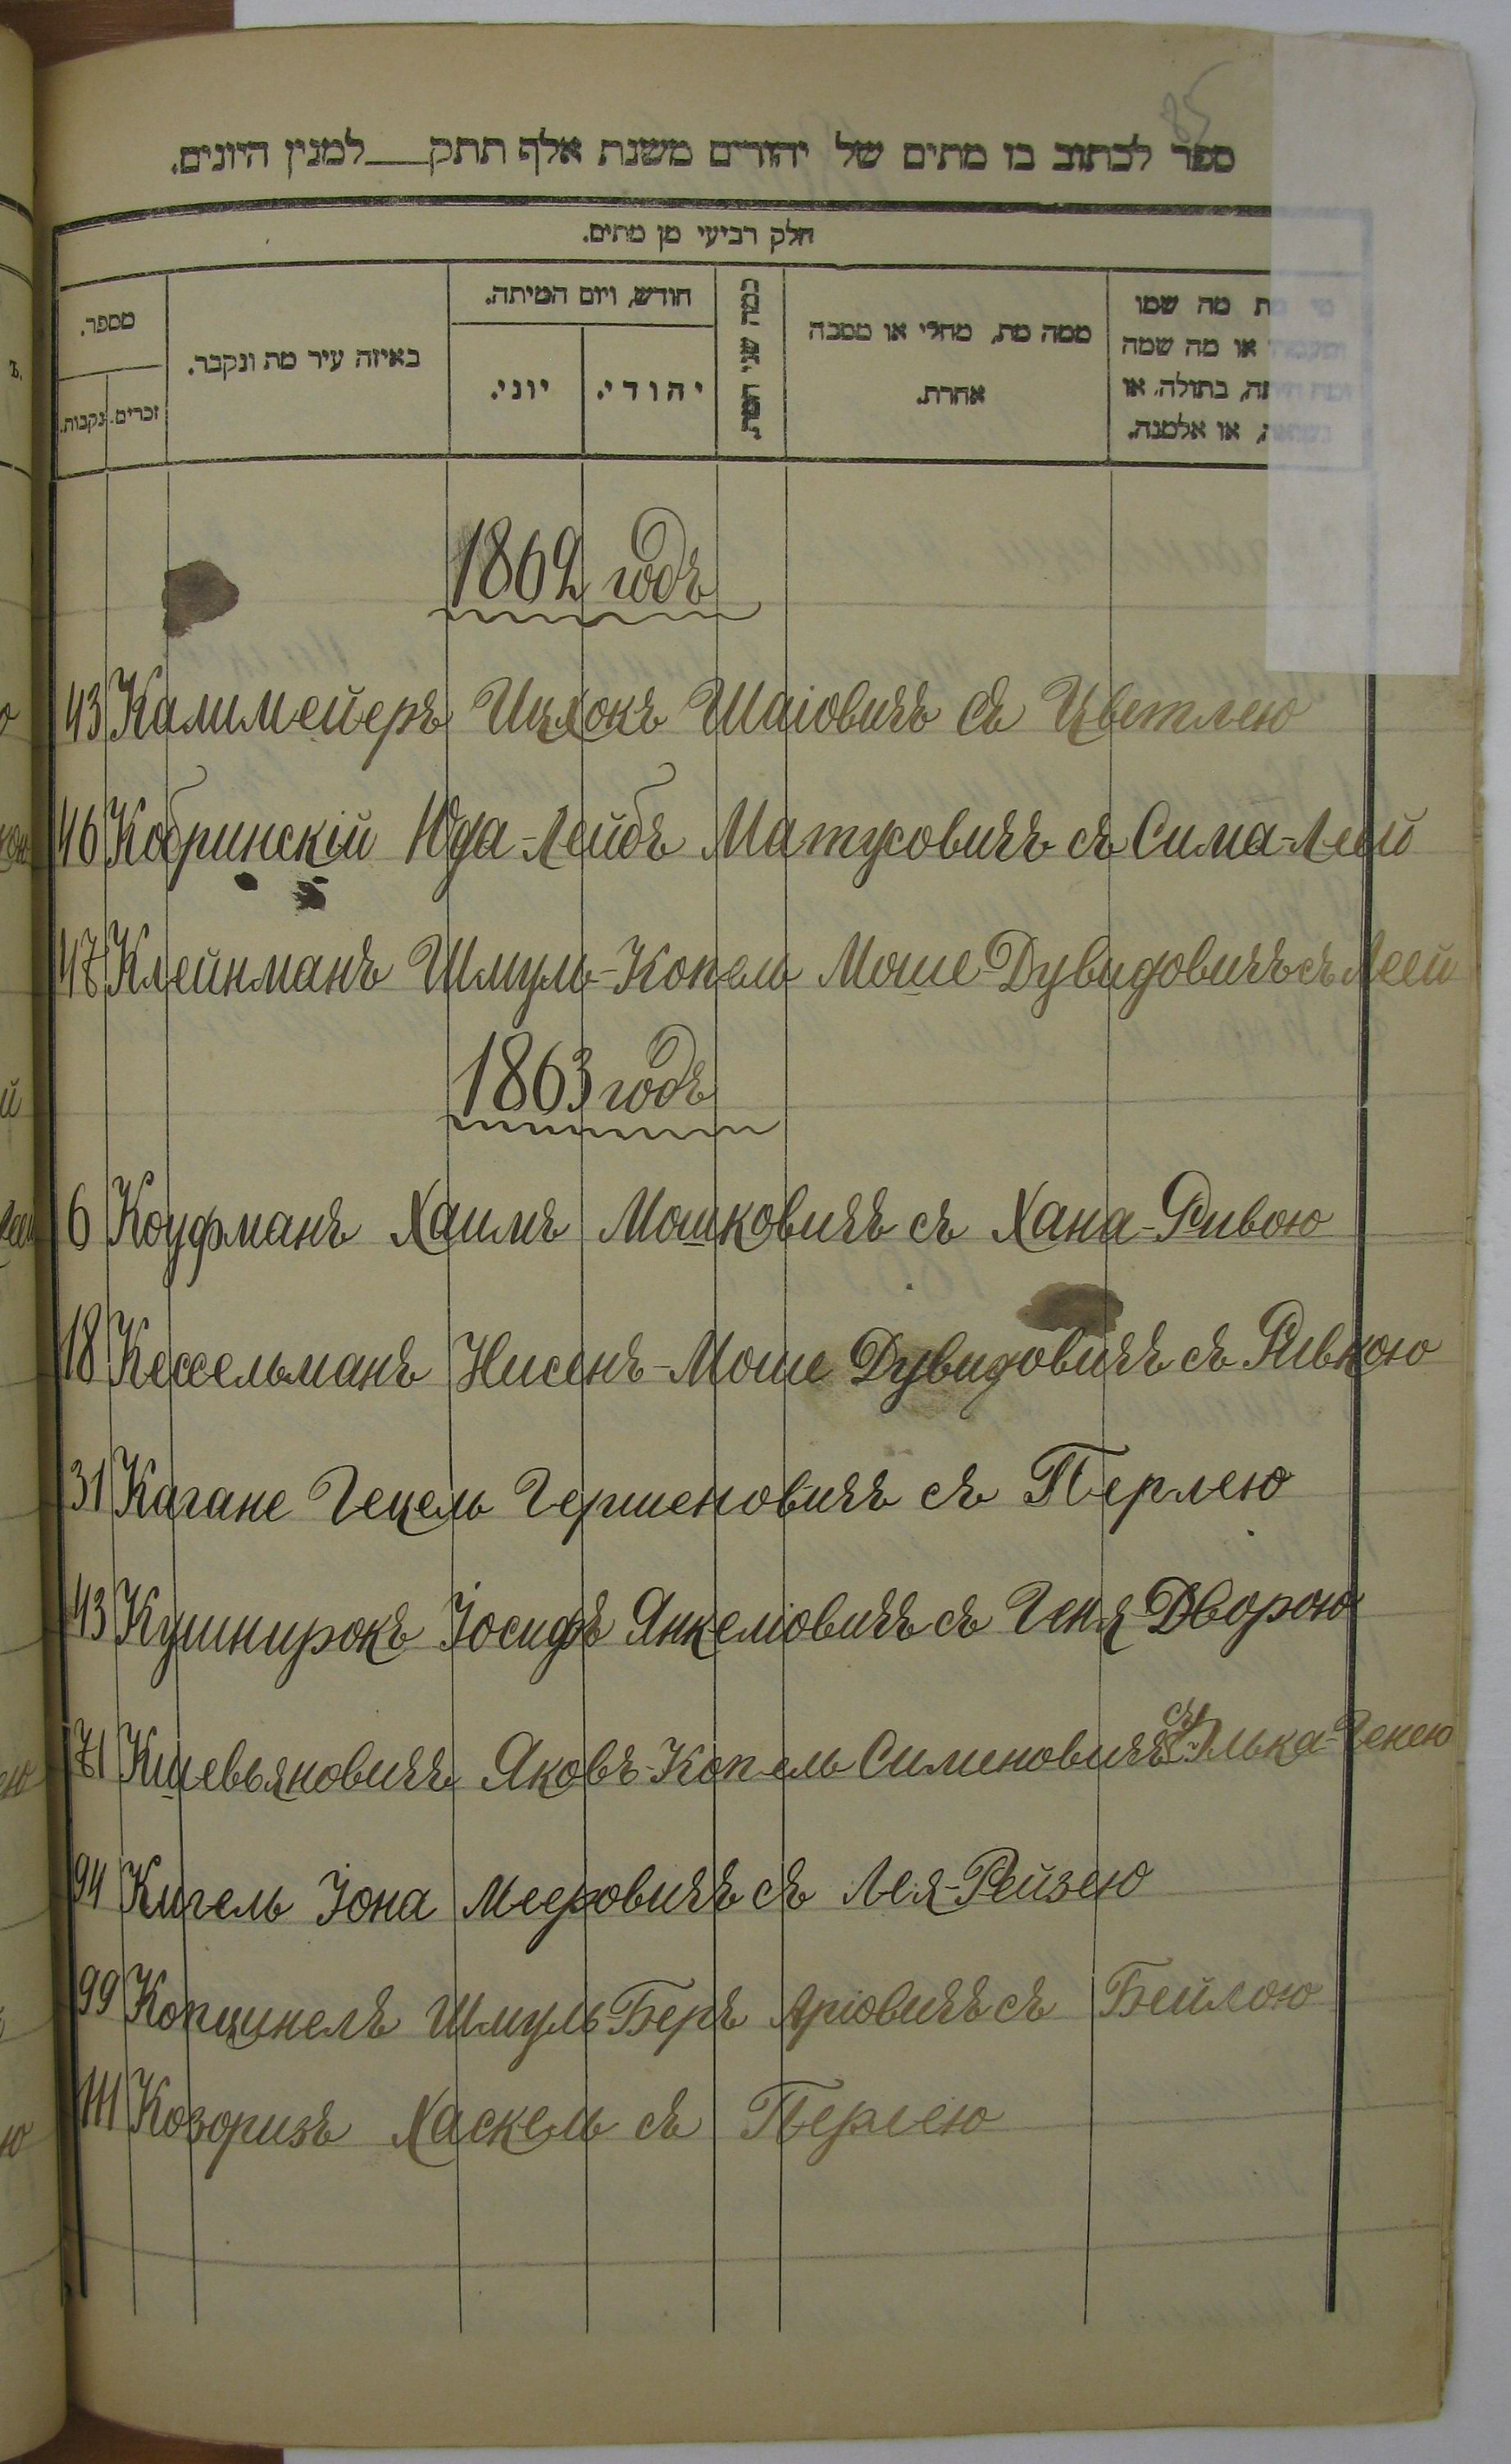 85
ספר לכתוב בו מתים של יהודים משנת אלף תתק___למנין היונים.
חלק רביעי מן מתים.
מספר.
זכרים.
נקבות.
באיזה עיר מת ונקבר.
חודש, ויום המיתה.
יוני.
יהודי.
כמה שני המת.
ממה מת, מחלי או מסבה
אחרת.
מי מת מה שמו
או מה שמה
בתולה, או
או אלמנה.
1862 годъ
43 Калимейеръ Ицхокъ Шаіовичъ съ Цветлею
46 Кобринскій Юда-Лейбъ Матусовичъ съ Сима-Леей
47 Клейнманъ Шмуль-Копель Моше-Дувидовичъ съ Леей
1863 годъ
6 Коуфманъ Хаимъ Мошковичъ съ Хана-Ривою
18 Кессельманъ Нисенъ-Моше Дувидовичъ съ Ривкою
31 Кагане Гецель Гершеновичъ съ Перлею
43 Кушнирокъ Іосифъ Янкеліовичъ съ Геня-Дворою
71 Яковъ-Копель Сименовичъ съ Элька-Генею
94 Кигель Іона Мееровичъ съ Лея-Рейзею
99 Копцинелъ Шмуль-Беръ Аріовичъ съ Бейлою
111 Козоризъ Хаскель съ Перлею